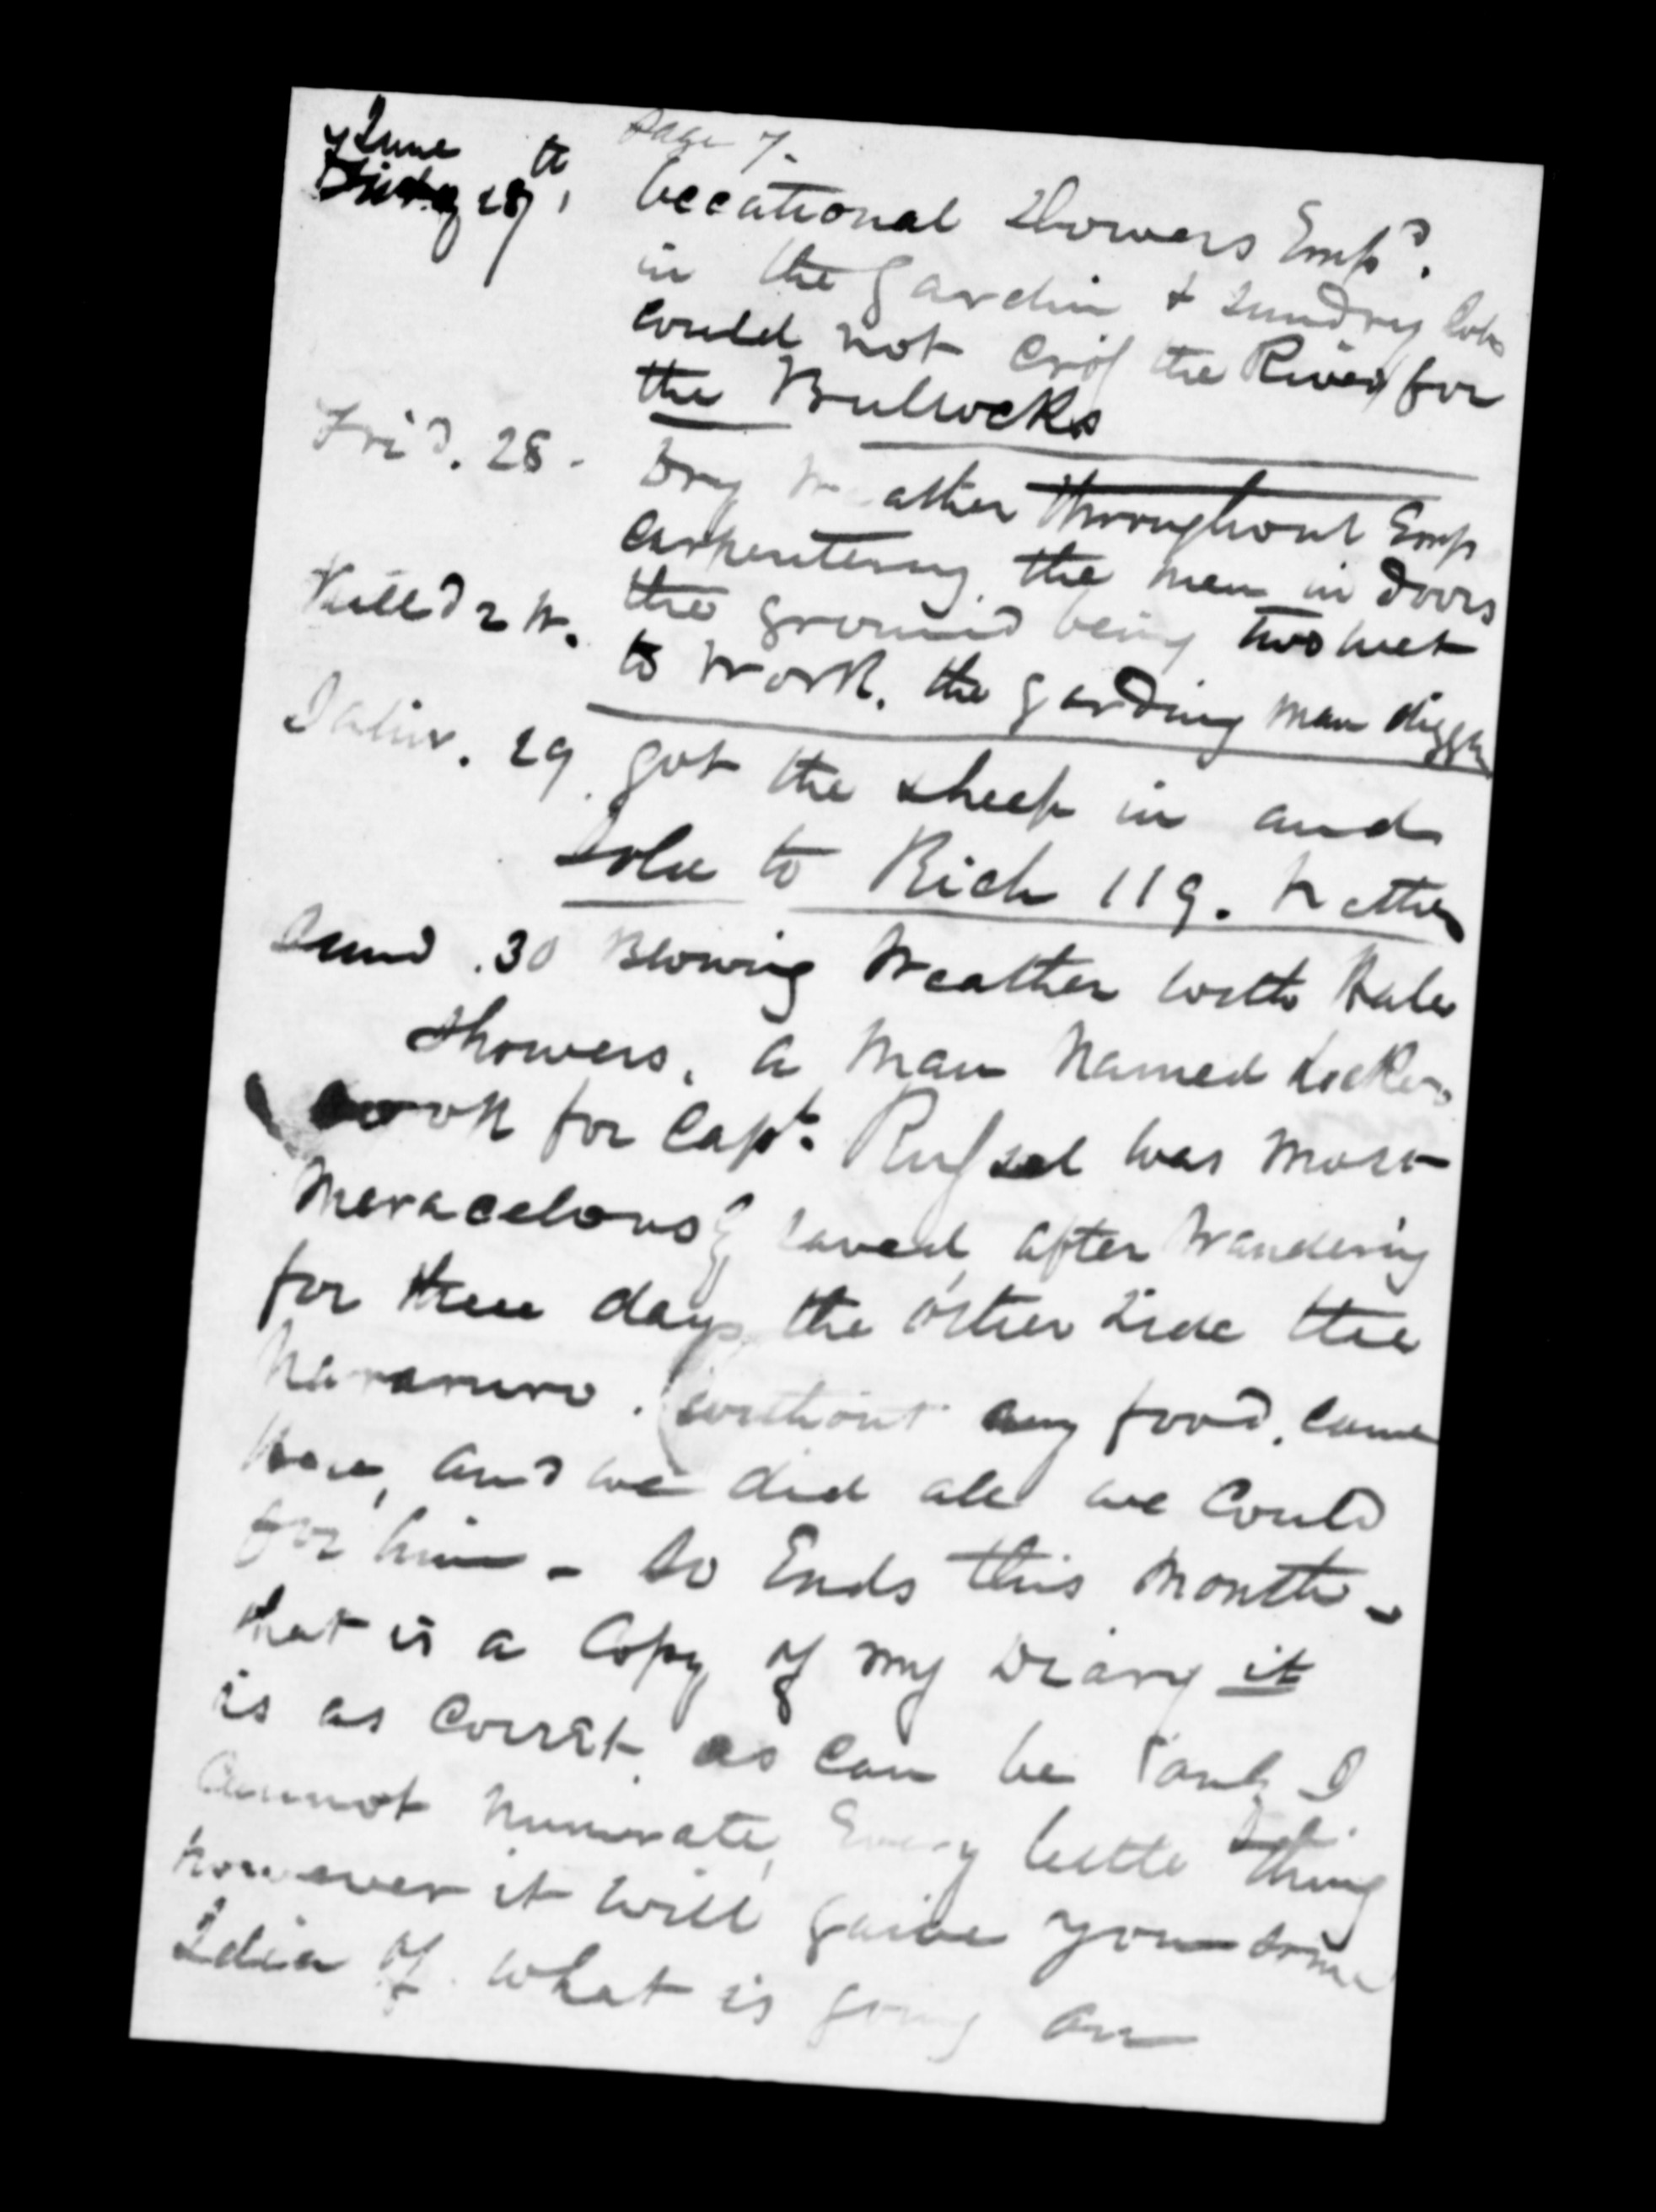 Page 7.
June
27th, Occational Showers Empd.
in the Gardin & Sundry Jobs
could not Cross the River for
the Bullocks
Frid. 28. Dry Weather throughout Emp
Carpentering, the men in doors
Killd 2 W. the ground being two wet
to Work. the Garding man digging
Satur. 29. got the sheep in and
Sold to Rich 119. Wethers
Sund. 30 Blowing Weather with Hale
Showers, a Man Named
Cook for Capt. Russel was most
Meracelously saved, after Wandering
for three days the other Side the
without any food. Came
here, and we did all we Could
for him - So Ends this Month -
that is a Copy of my Diary it
is as Corrêt as can be I
Cannot Numerate, Every little thing
however it will gaive you some
Idia of what is going on